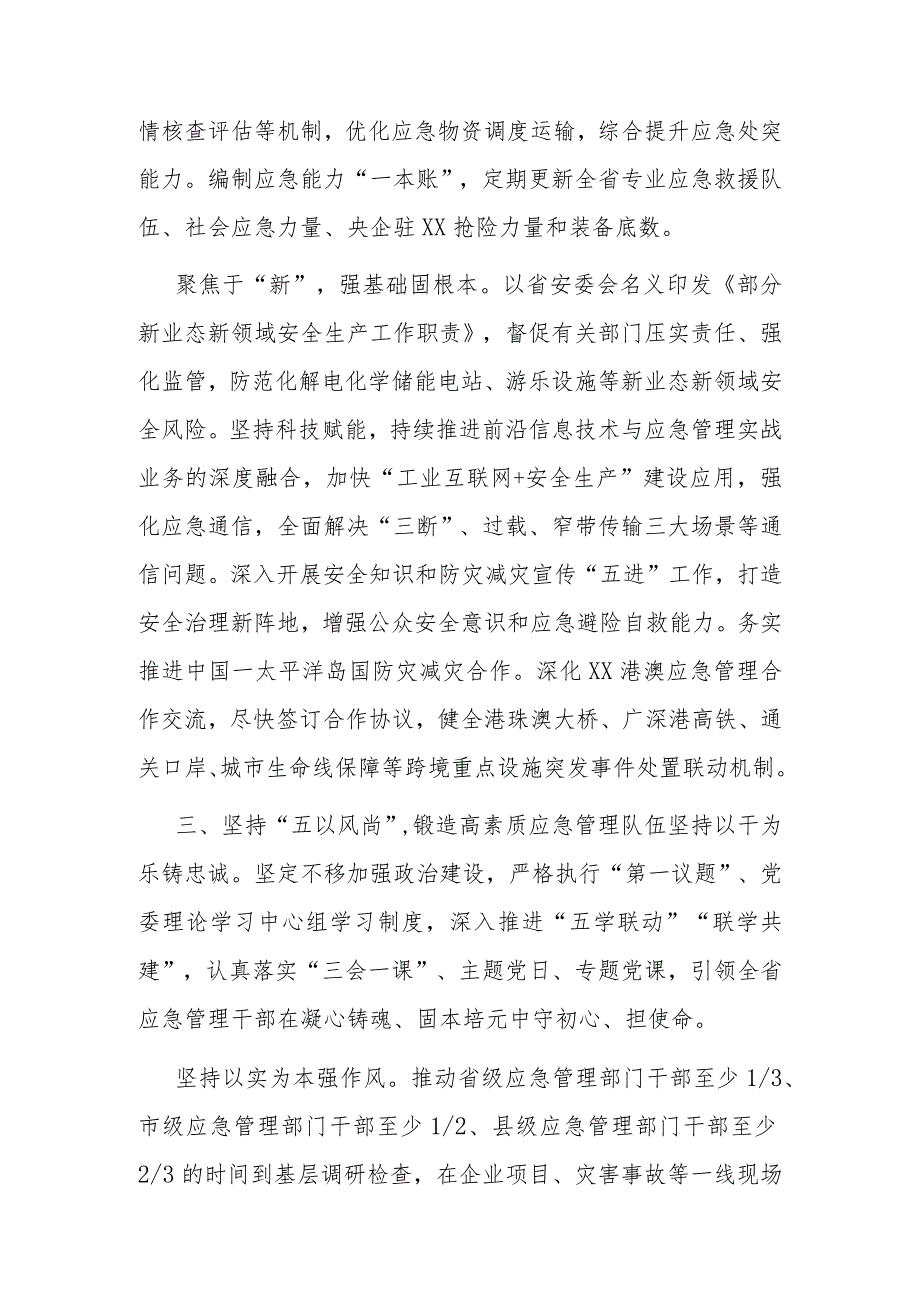 情核查评估等机制，优化应急物资调度运输，综合提升应急处突
能力。编制应急能力“一本账”，定期更新全省专业应急救援队
伍、社会应急力量、央企驻XX抢险力量和装备底数。
聚焦于“新”，强基础固根本。以省安委会名义印发《部分
新业态新领域安全生产工作职责》，督促有关部门压实责任、强
化监管，防范化解电化学储能电站、游乐设施等新业态新领域安
全风险。坚持科技赋能，持续推进前沿信息技术与应急管理实战
业务的深度融合，加快“工业互联网+安全生产”建设应用，强
化应急通信，全面解决“三断”、过载、窄带传输三大场景等通
信问题。深入开展安全知识和防灾减灾宣传“五进”工作，打造
安全治理新阵地，增强公众安全意识和应急避险自救能力。务实
推进中国一太平洋岛国防灾减灾合作。深化XX港澳应急管理合
作交流，尽快签订合作协议，健全港珠澳大桥、广深港高铁、通
关口岸、城市生命线保障等跨境重点设施突发事件处置联动机制。
三、坚持“五以风尚”,锻造高素质应急管理队伍坚持以干为
乐铸忠诚。坚定不移加强政治建设，严格执行“第一议题”、党
委理论学习中心组学习制度，深入推进“五学联动”“联学共
建”，认真落实“三会一课”、主题党日、专题党课，引领全省
应急管理干部在凝心铸魂、固本培元中守初心、担使命。
坚持以实为本强作风。推动省级应急管理部门干部至少1/3、
市级应急管理部门干部至少1/2、县级应急管理部门干部至少
2/3的时间到基层调研检查，在企业项目、灾害事故等一线现场